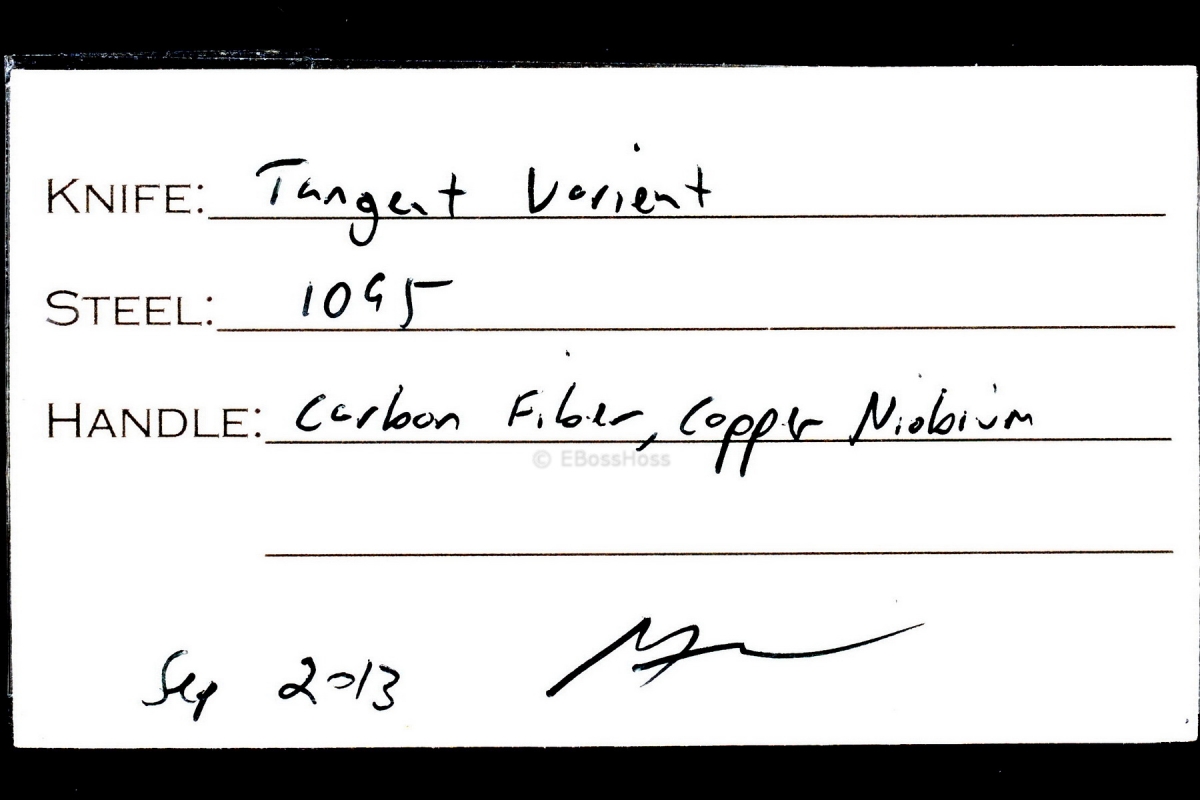 KNIFE: Tangent Varient
STEEL: 1095
HANDLE: Carbon Fiber, Copper Niobium
© EBossHoss
Sep 2013